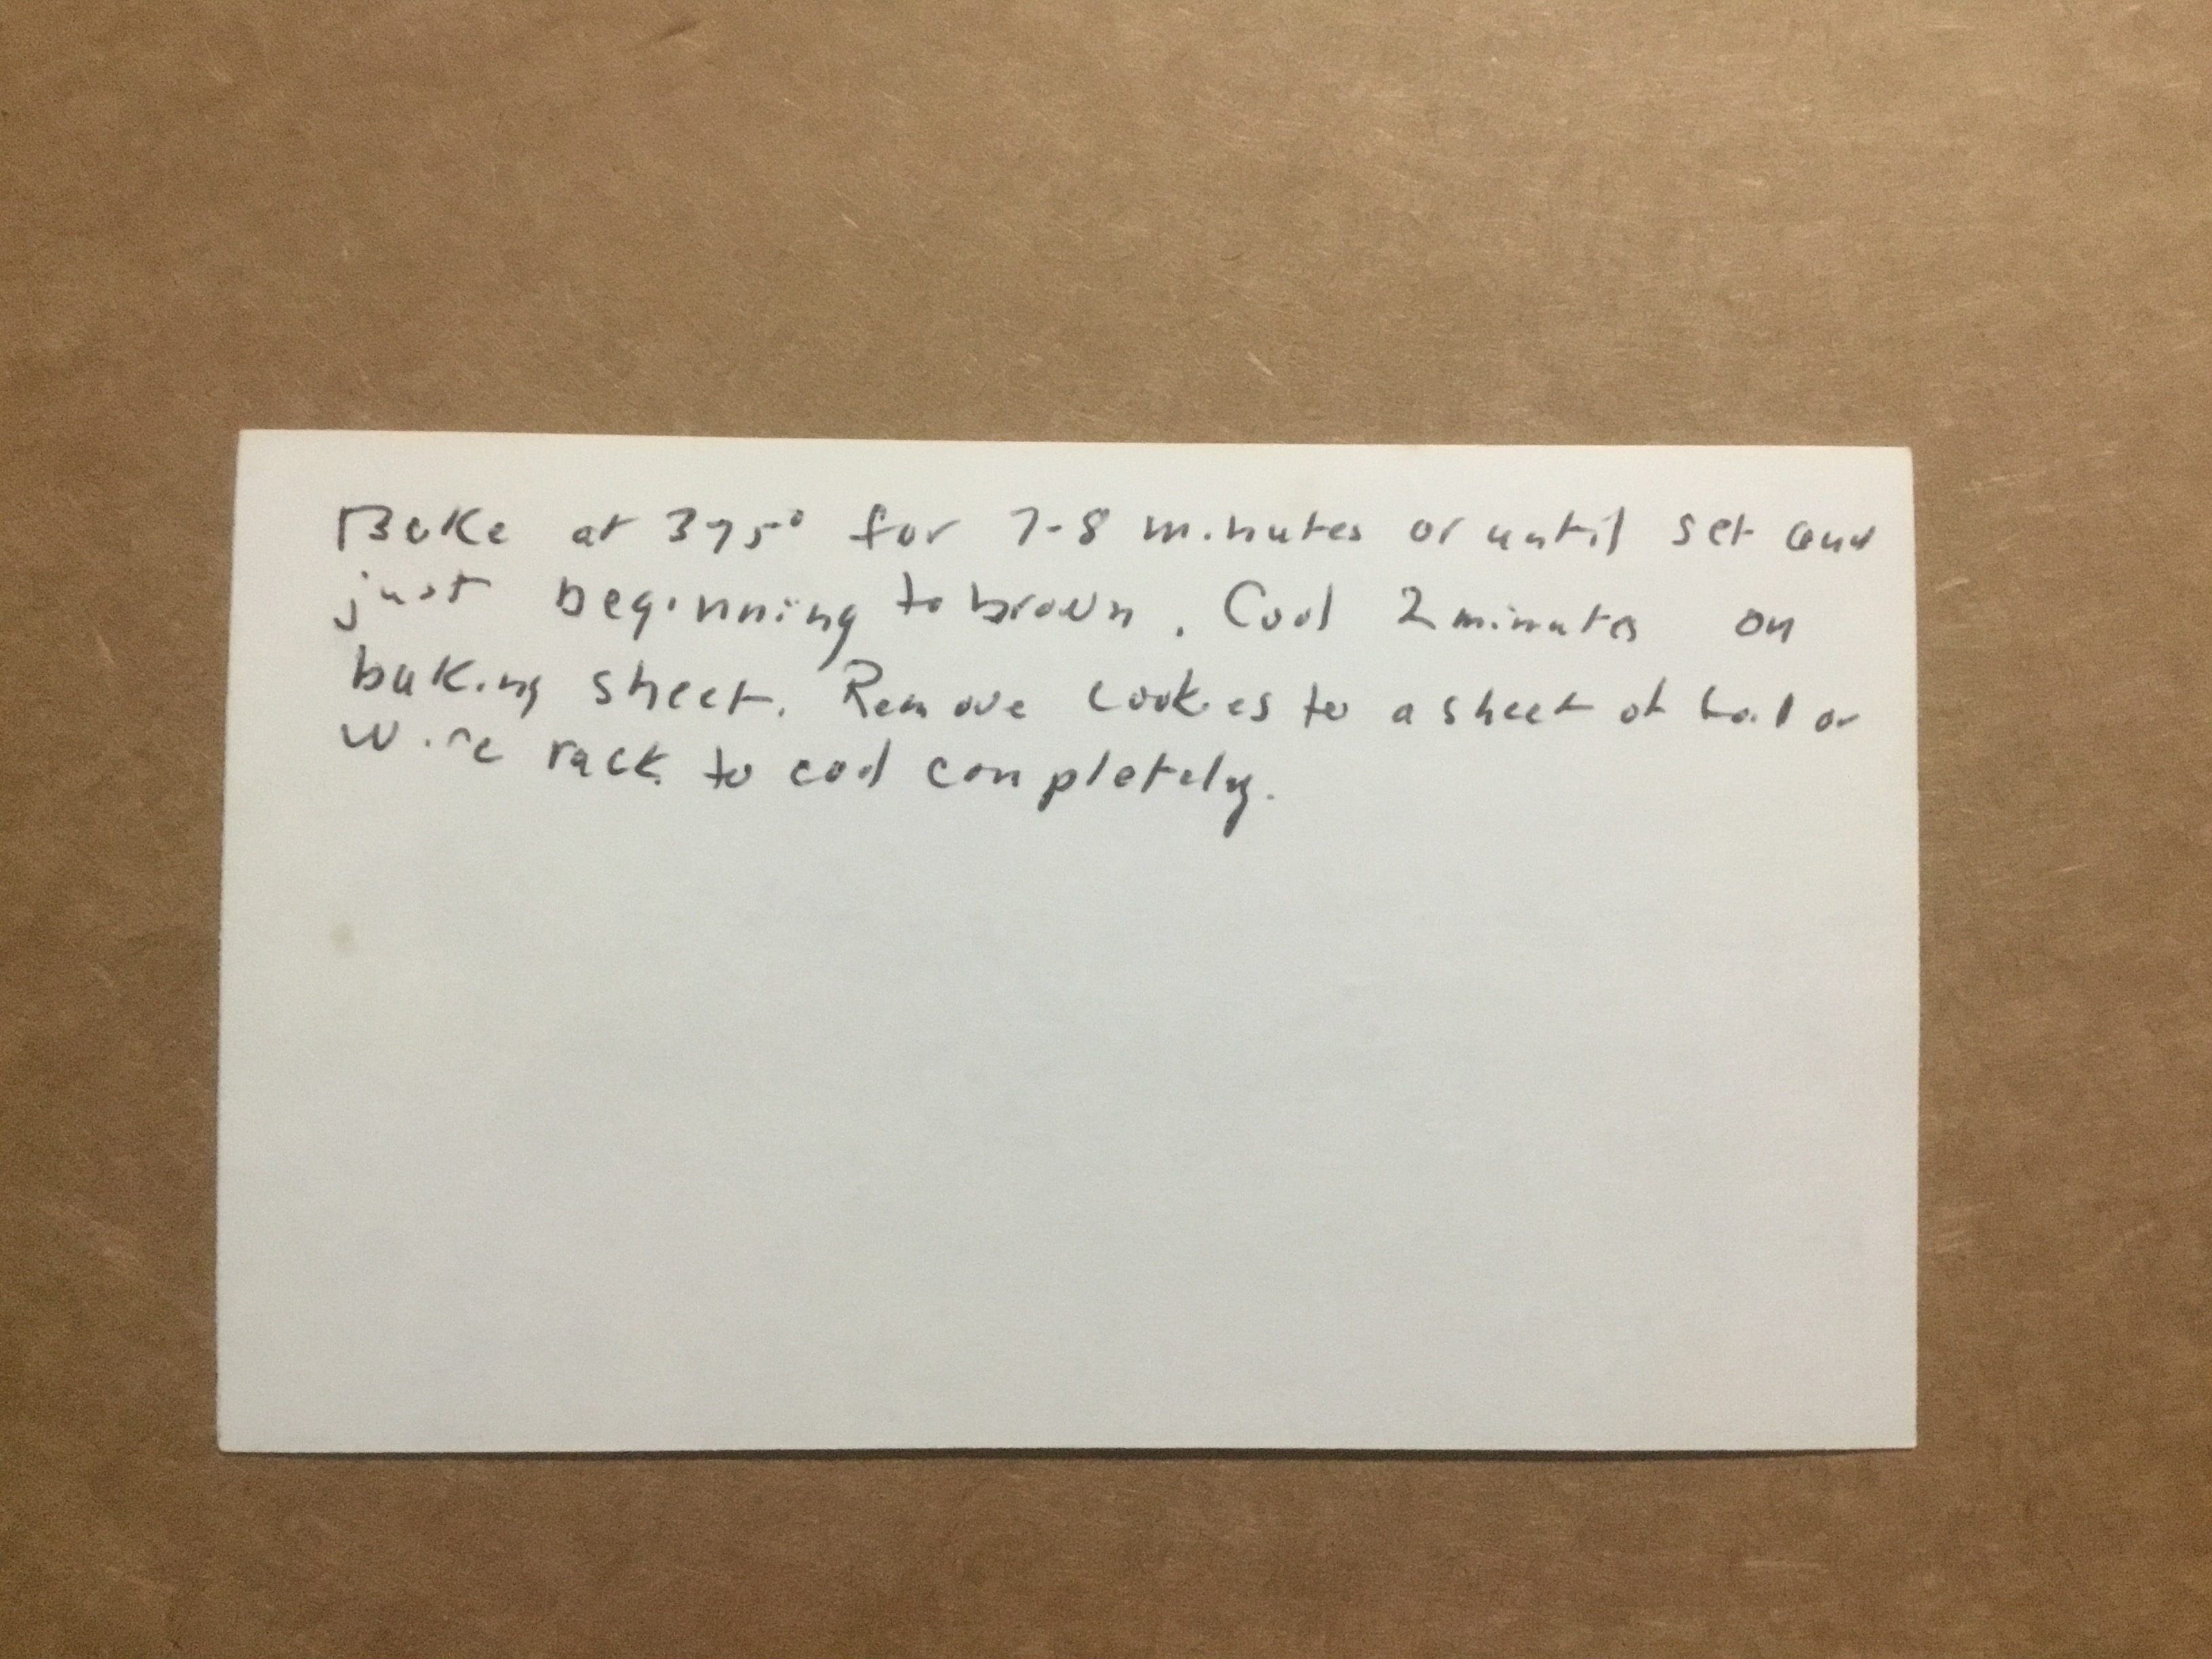 Bake at 375° for 7-8 minutes or until set and
just beginning to brown. Cool 2 minutes on
baking sheet. Remove cookies to a sheet of foil or
wire rack to cool completely.